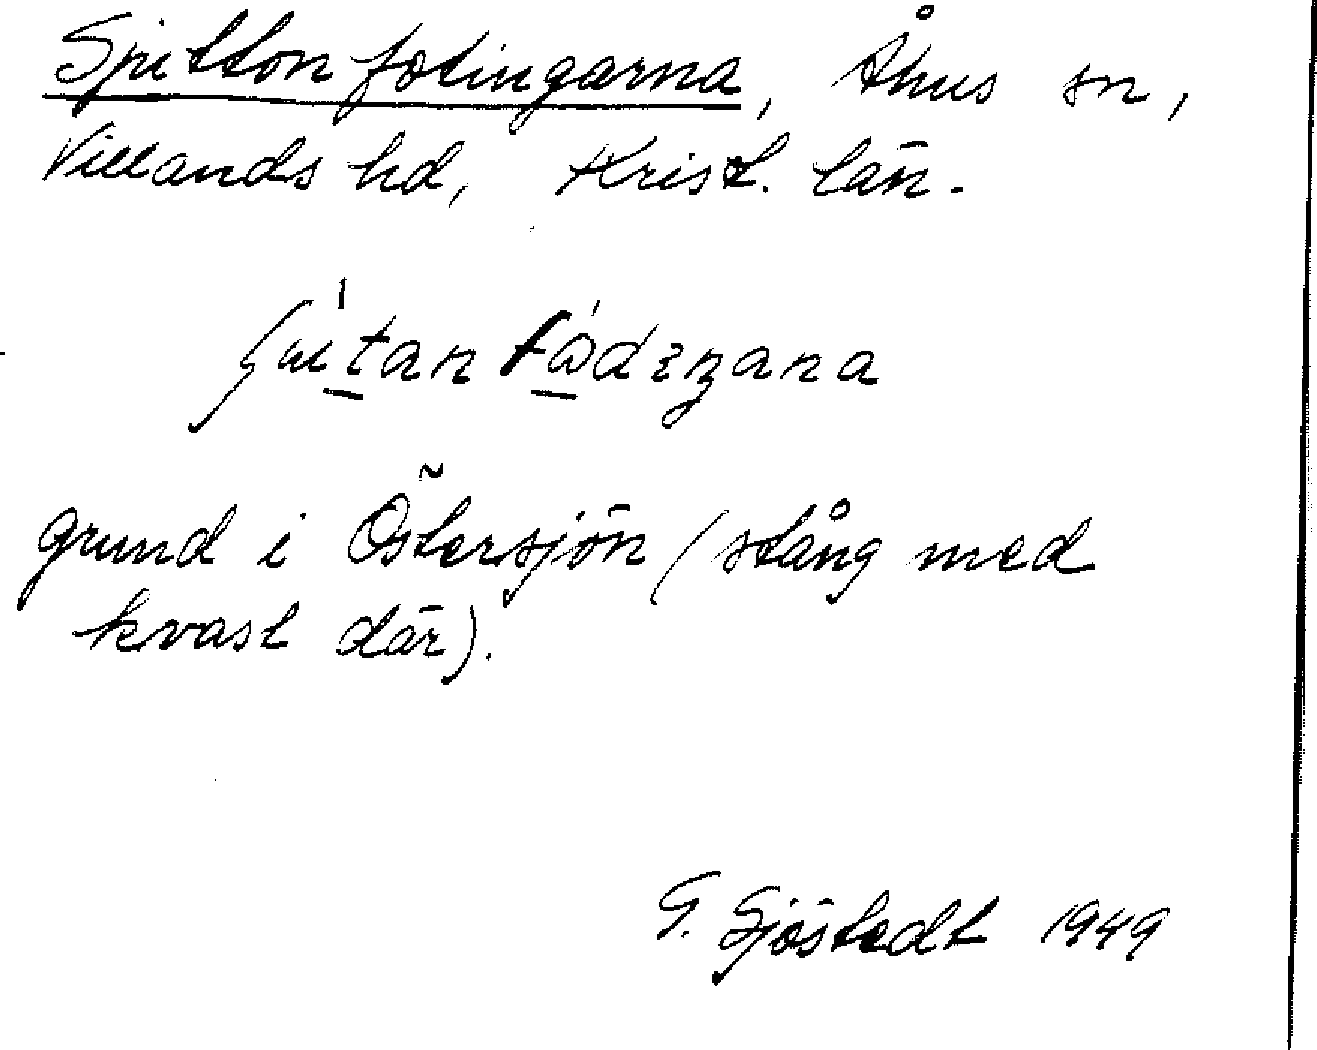 Spittonfotingarna, Åhus sn,
Villands hd, Krist. län.
grund i Östersjön (stång med
kvast där).
G. Sjöstedt 1949